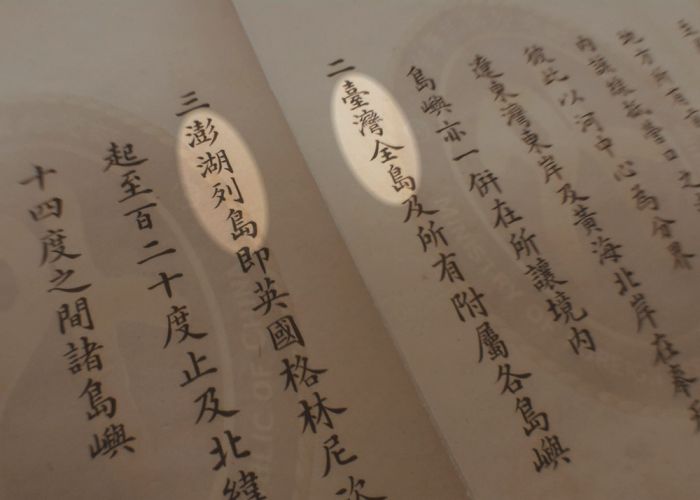 地方所有
內該線抵營口之
彼此以河中心為分界
遼東灣東岸及黃海北岸在奉
島嶼亦一併在所讓境內
二臺灣全島及所有附屬各島嶼
三澎湖列島即英國格林尼次
起至百二十度止及北緯
十四度之間諸島嶼
MINISTRY O
LIC OF CHIN